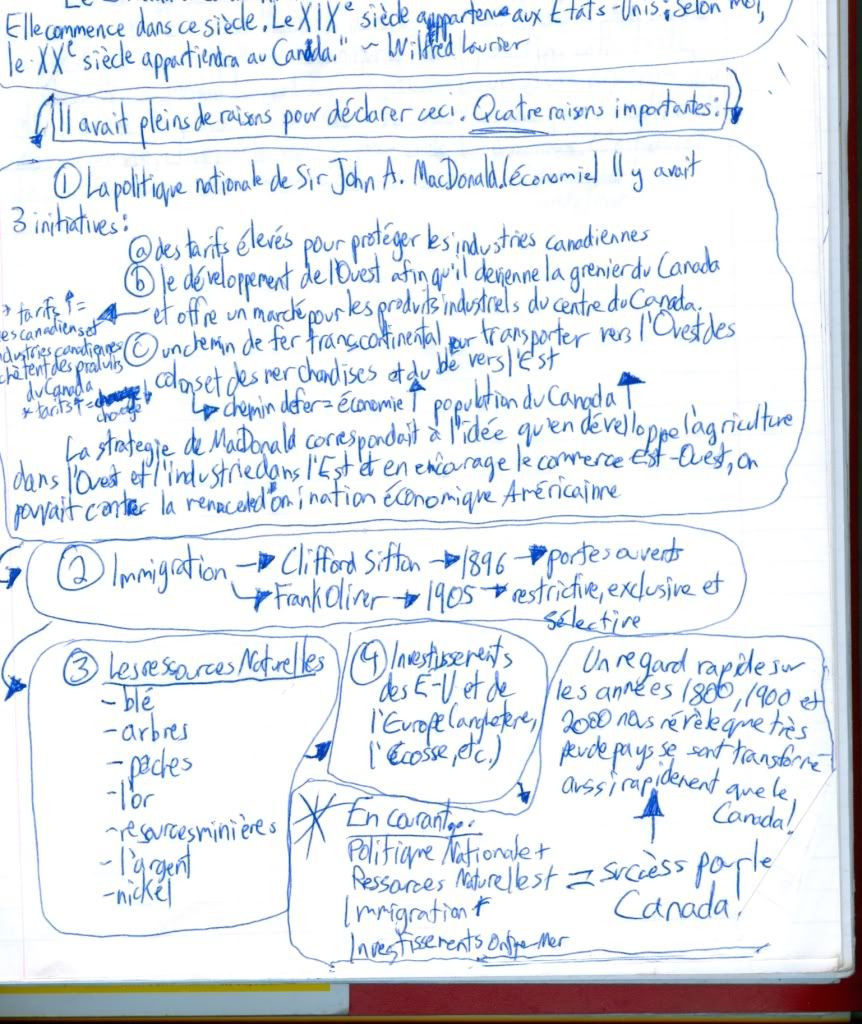 Elle commence dans ce siècle. Le XIXe siècle appartenu aux États-Unis; selon moi,
le XXe siècle appartiendra au Canada." ~ Wilfred Laurier
Il avait pleins de raisons pour déclarer ceci. Quatre raisons importantes:
① La politique nationale de Sir John A. MacDonald (économie) Il y avait
3 initiatives:
ⓐ des tarifs élevés pour protéger les industries canadiennes
ⓑ le développement de l'Ouest afin qu'il devienne la grenier du Canada
et offre un marché pour les produits industriels du centre du Canada.
* tarifs ↑ =
les canadiens et
industries canadiennes
achètent des produits
du Canada
* tarifs ↑ =
ⓒ un chemin de fer transcontinental pour transporter vers l'Ouest des
colons et des merchandises et du blé vers l'Est
↳ chemin de fer = économie ↑ population du Canada ↑
La strategie de MacDonald correspondait à l'idée qu'en dévelloppe l'agriculture
dans l'Ouest et l'industrie dans l'Est et en encourage le commerce Est-Ouest, on
pouvait contrer la domination économique Américainne
② Immigration → Clifford Sifton → 1896 → portes ouverts
↳ Frank Oliver → 1905 → restrictive, exclusive et
sélective
③ Les ressources Naturelles
- blé
- arbres
- pêches
- l'or
- resources minières
- l'argent
- nickel
④ Investissements
des E-U et de
l'Europe (angleterre,
l'écosse, etc.)
Un regard rapide sur
les années 1800, 1900 et
2000 nous révèle que très
peu de pays se sont transformé
aussi rapidement que le
Canada!
* En courant:
Politique Nationale +
Ressources Naturelles +
Immigration +
Investissements Outre-Mer
= succèss pour le
Canada!